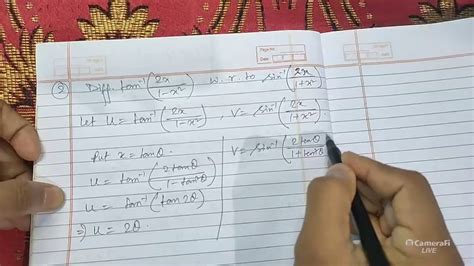 Page No.
Date
(3) Diff. tan⁻¹(2x/1-x²) w.r.to sin⁻¹(2x/1+x²)
Let u = tan⁻¹(2x/1-x²) , v = sin⁻¹(2x/1+x²)
Put x = tanθ.
u = tan⁻¹(2tanθ/1-tan²θ)
v = sin⁻¹(2tanθ/1+tan²θ
u = tan⁻¹(tan2θ)
⇒ u = 2θ.
CameraFi
LIVE